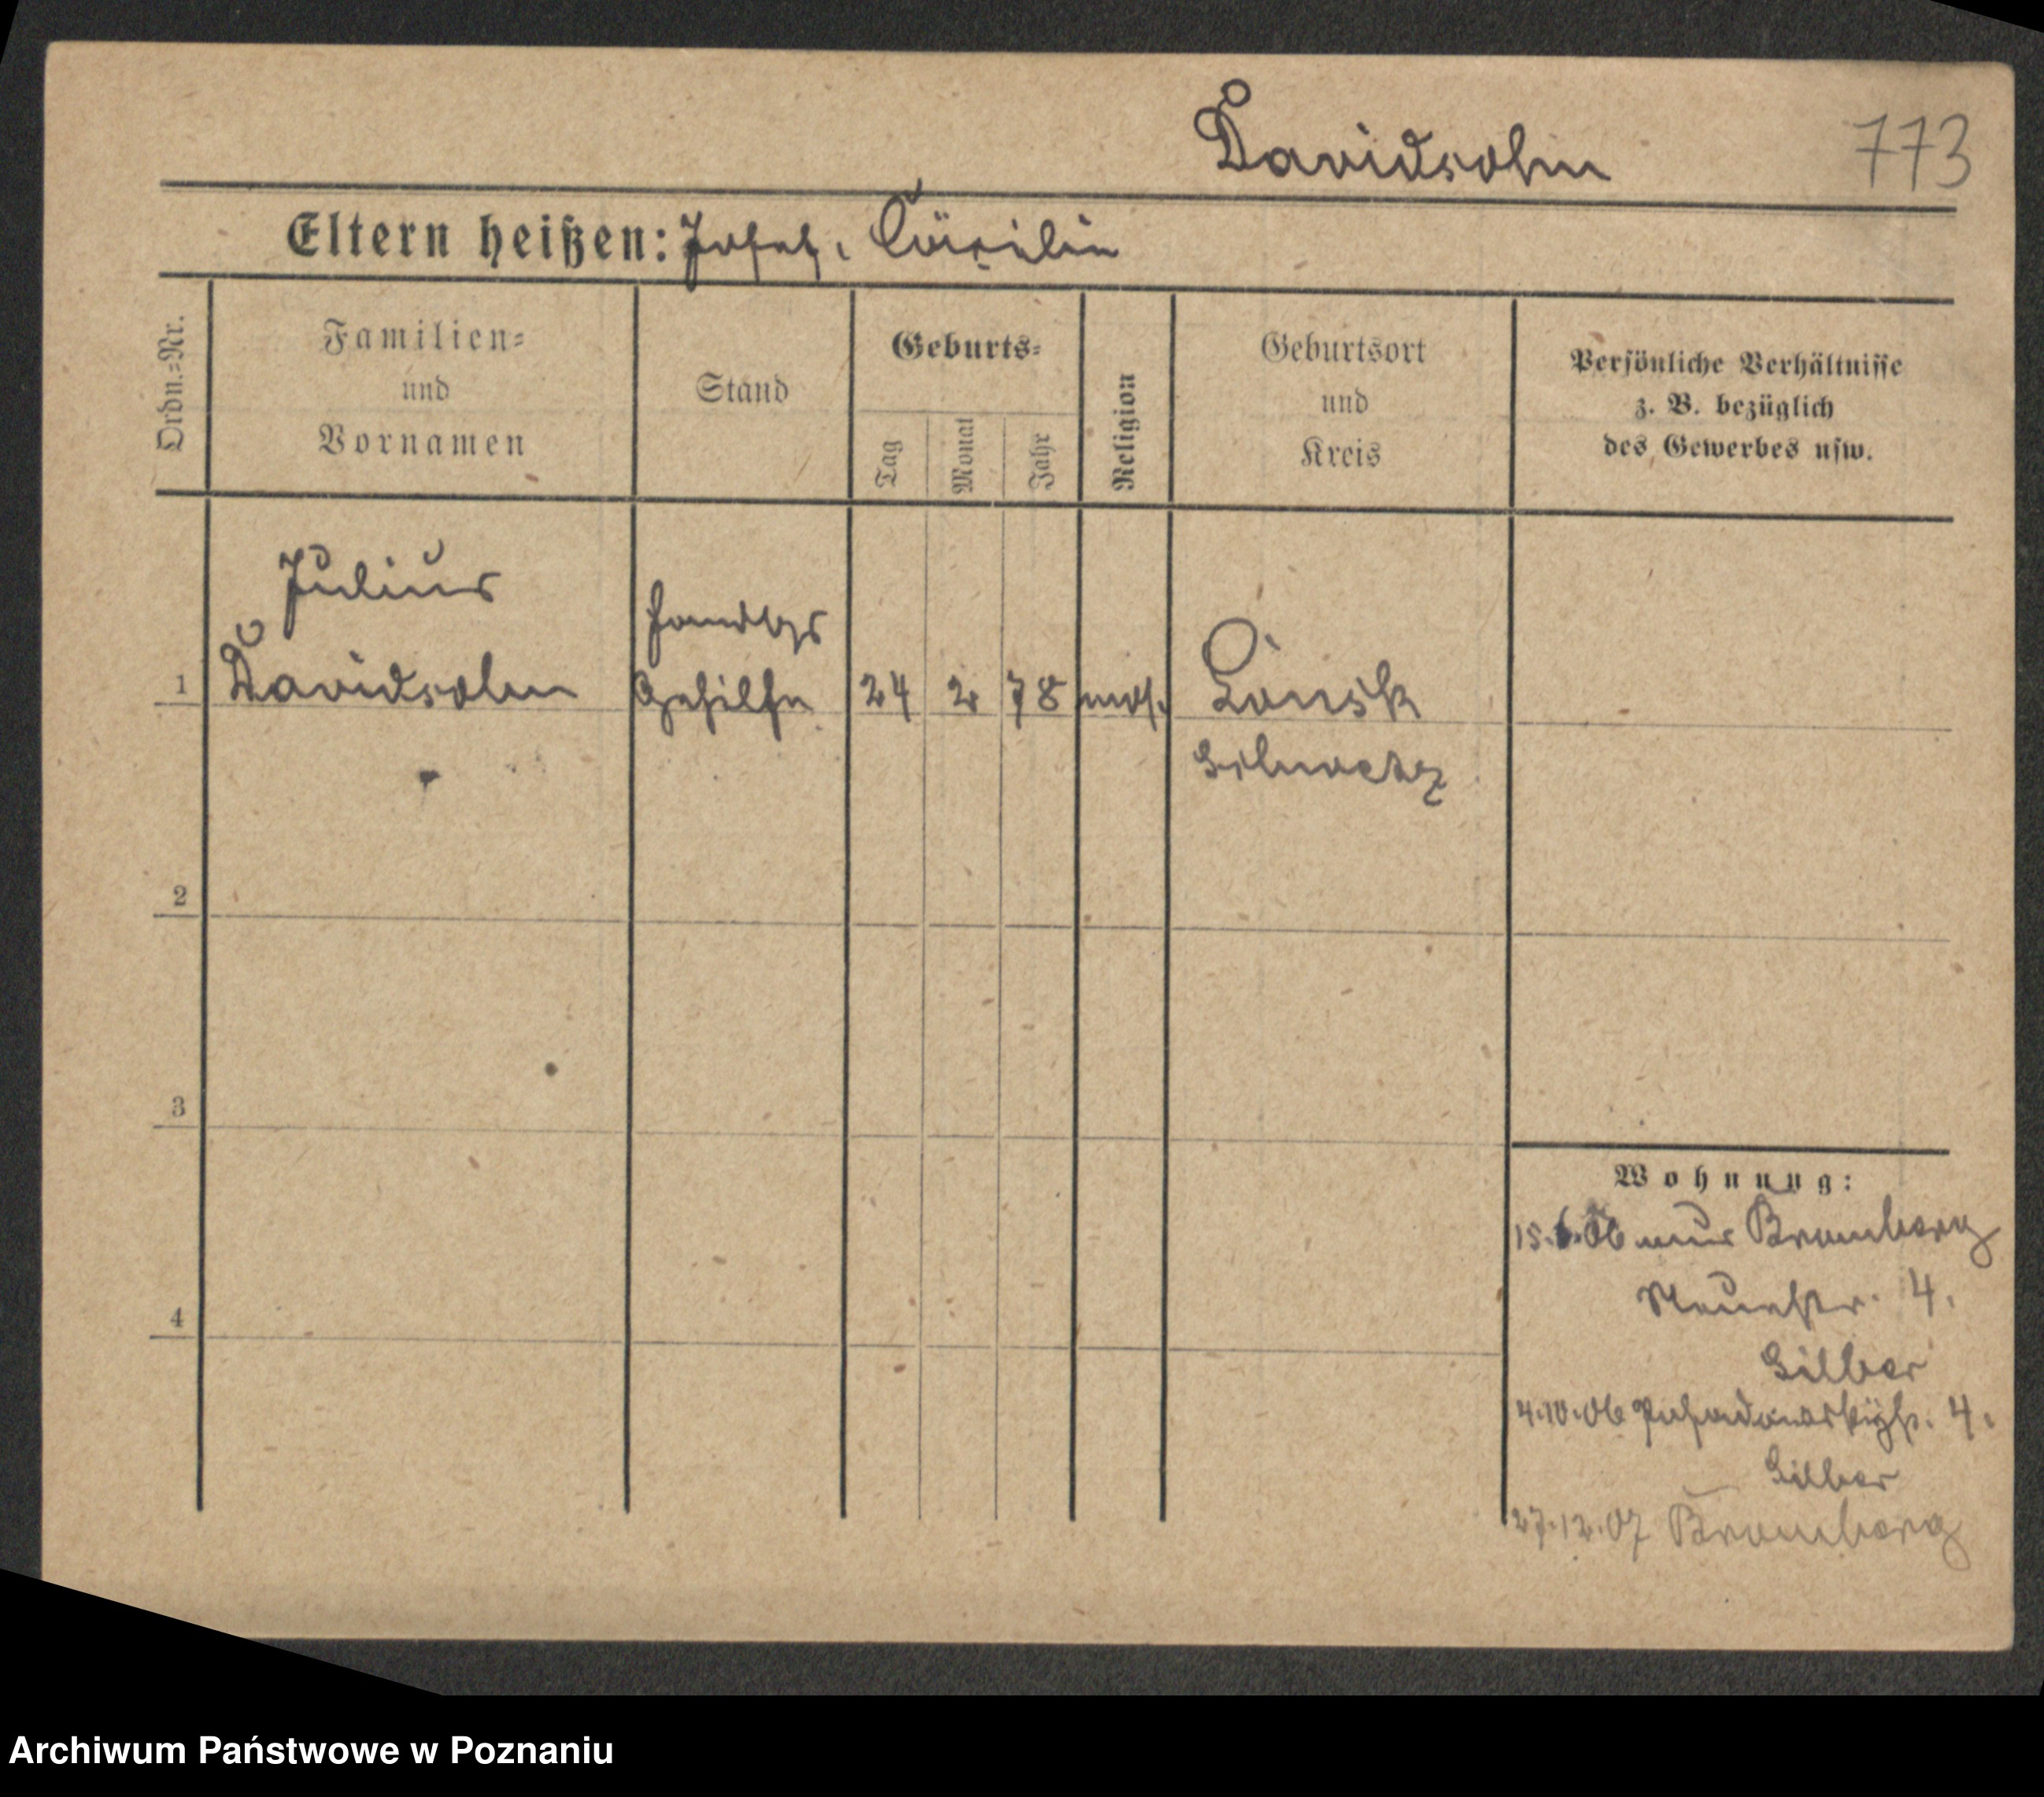 Davidsohn 773
Eltern heißen: Josef, Cäcilie
Ordn.=Nr.
Familien=
und
Vornamen
Stand
Geburts=
Tag
Monat
Jahr
Religion
Geburtsort
und
Kreis
Persönliche Verhältnisse
z. B. bezüglich
des Gewerbes usw.
Julius
Handlgs
1 Davidsohn Gehilfe 24 2 78 mos. Lonsk
Schwetz
2
3
4
Wohnung:
15.6.06 aus Bromberg
Neuestr. 4.
Silber
4.10.06 4.
Silber
27.12.07 Bromberg
Archiwum Państwowe w Poznaniu